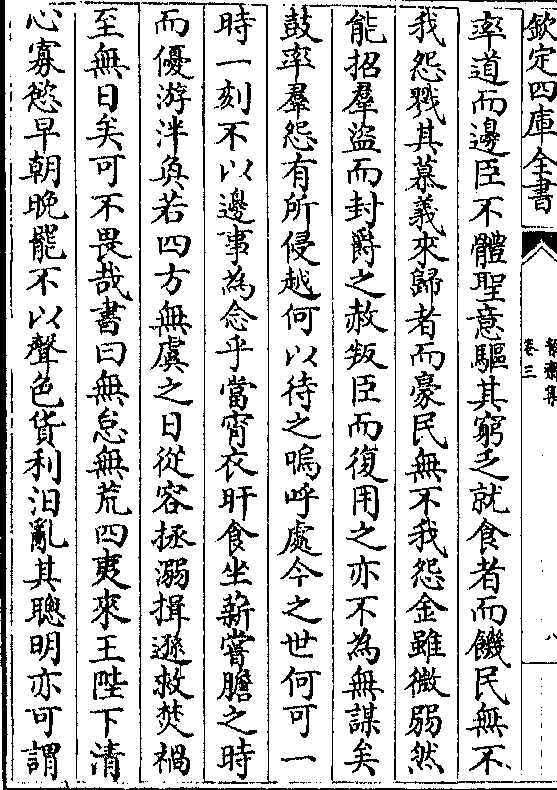 欽定四庫全書
卷三
八
率道而邊臣不體聖意驅其窮乏就食者而饑民無不
我怨戮其慕義來歸者而豪民無不我怨金雖微弱然
能招羣盜而封爵之赦叛臣而復用之亦不為無謀矣
鼓率羣怨有所侵越何以待之嗚呼處今之世何可一
時一刻不以邊事為念乎當宵衣旰食坐薪嘗膽之時
而優游泮奐若四方無虞之日從容拯溺揖遜救焚禍
至無日矣可不畏哉書曰無怠無荒四夷來王陛下清
心寡慾早朝晚罷不以聲色貨利汨亂其聰明亦可謂